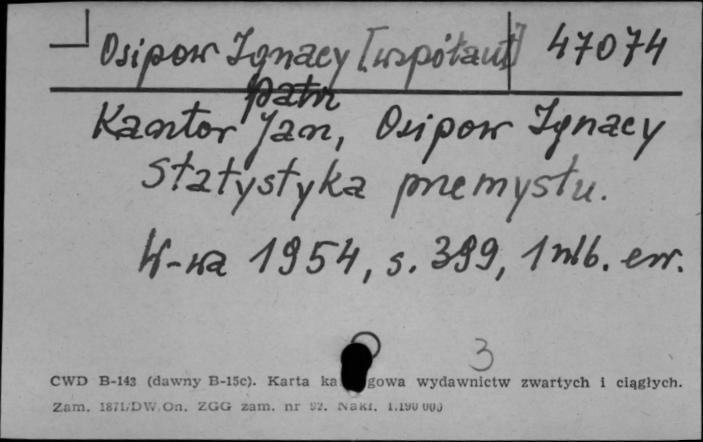 Osipow Ignacy [współaut] 47074
patrz
Kantor Jan, Osipow Ignacy
Statystyka przemysłu.
W-wa 1954, s. 399, 1 nlb. err.
3
CWD B-143 (dawny B-15c). Karta ka gowa wydawnictw zwartych i ciągłych.
Zam. 1871/DW.On. ZGG zam. nr 92. Nakł. 1.190 000